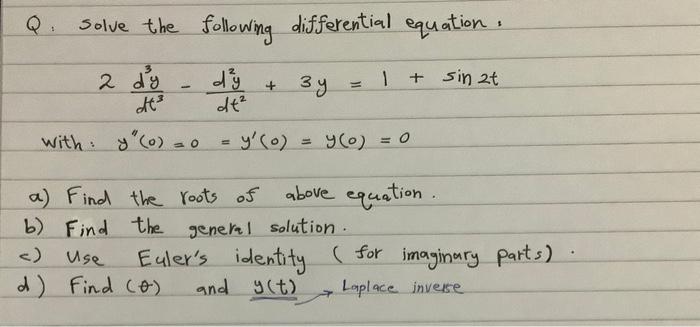 Q: solve the following differential equation:
2 d³y/dt³ - d²y/dt² + 3y = 1 + sin 2t
with: y"(0) = 0 = y'(0) = y(0) = 0
a) Find the roots of above equation.
b) Find the general solution.
c) Use Euler's identity (for imaginary parts).
d) Find (θ) and y(t) → Laplace inverse